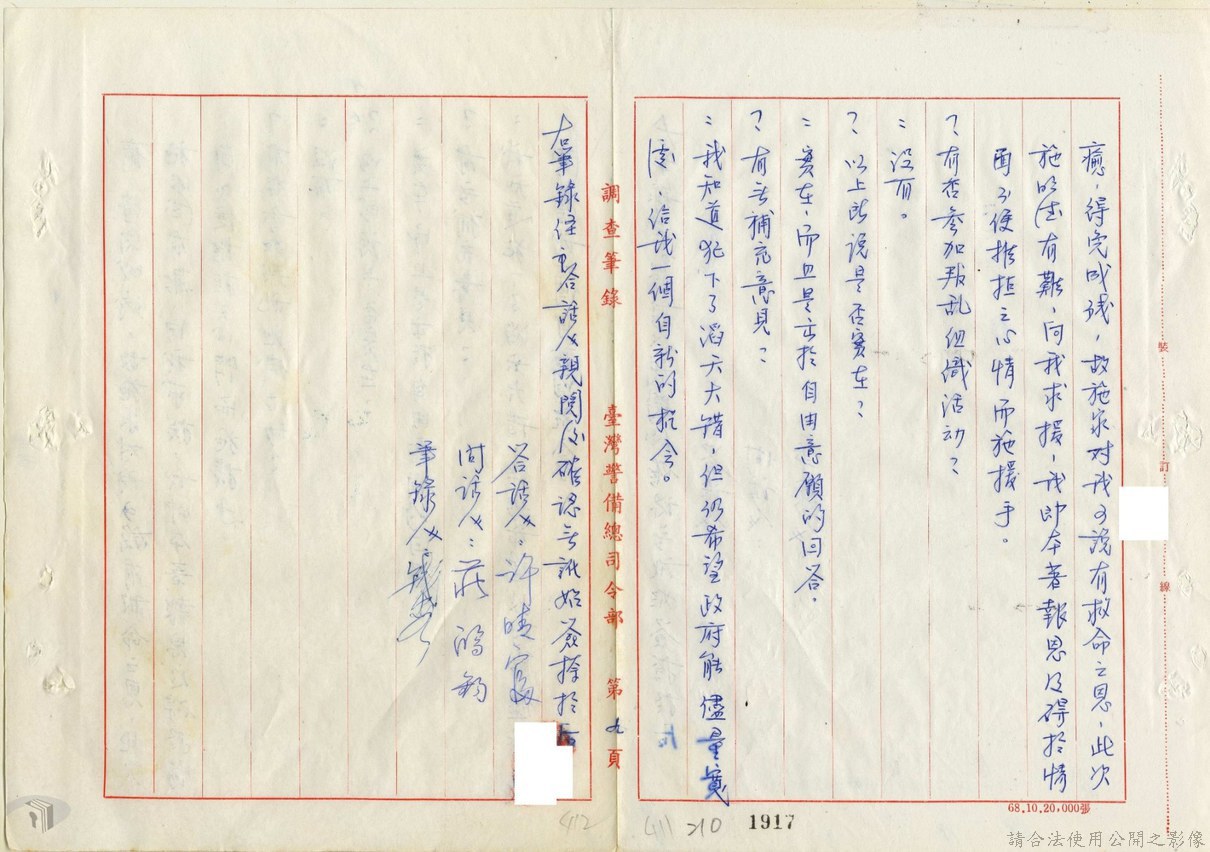 癒，得完成殘，故施家對我可說有救命之恩，此次
施明德有難，向我求援，我即本著報恩及碍於情
面不便推拒之心情而施援手。
？有否參加叛乱組織活动？
：沒有。
？以上所說是否實在？
：實在，而且是出於自由意願的回答。
？有無補充意見？
：我知道犯下了滔天大錯，但仍希望政府能儘量寬
處，給我一個自新的机会。
調查筆錄 臺灣警備總司令部 第九頁
右筆錄經交答話人親閱後確認無訛始簽捺於后
答話人：許晴富
問話人：莊鴻鈞
筆錄人
裝
訂
線
68.10.20,000張
1917
210
411
412
請合法使用公開之影像